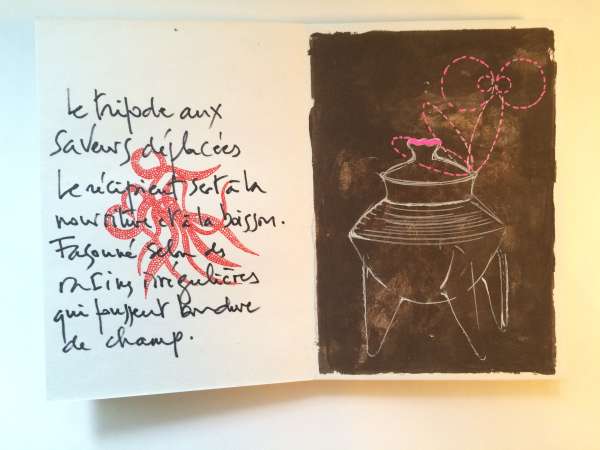 Le tripode aux
Saveurs déplacées
Le récipient sert à la
nourriture et à la boisson.
Façonné selon des
irrégulières
qui poussent
de champ.